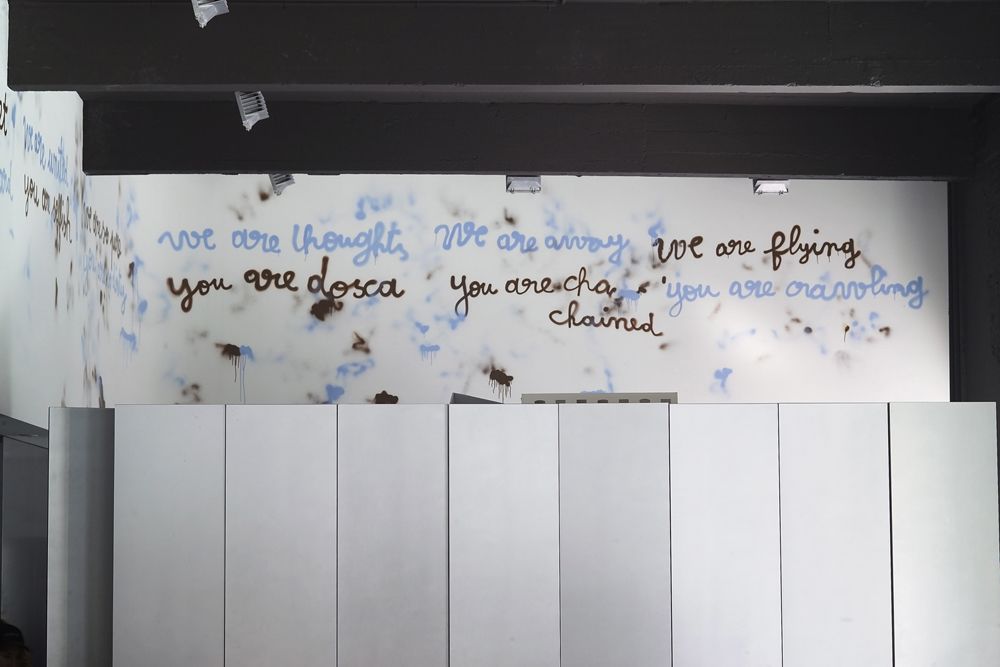 we are thoughts
you are dosca
We are away
you are cha
chained
we are flying
you are crawling